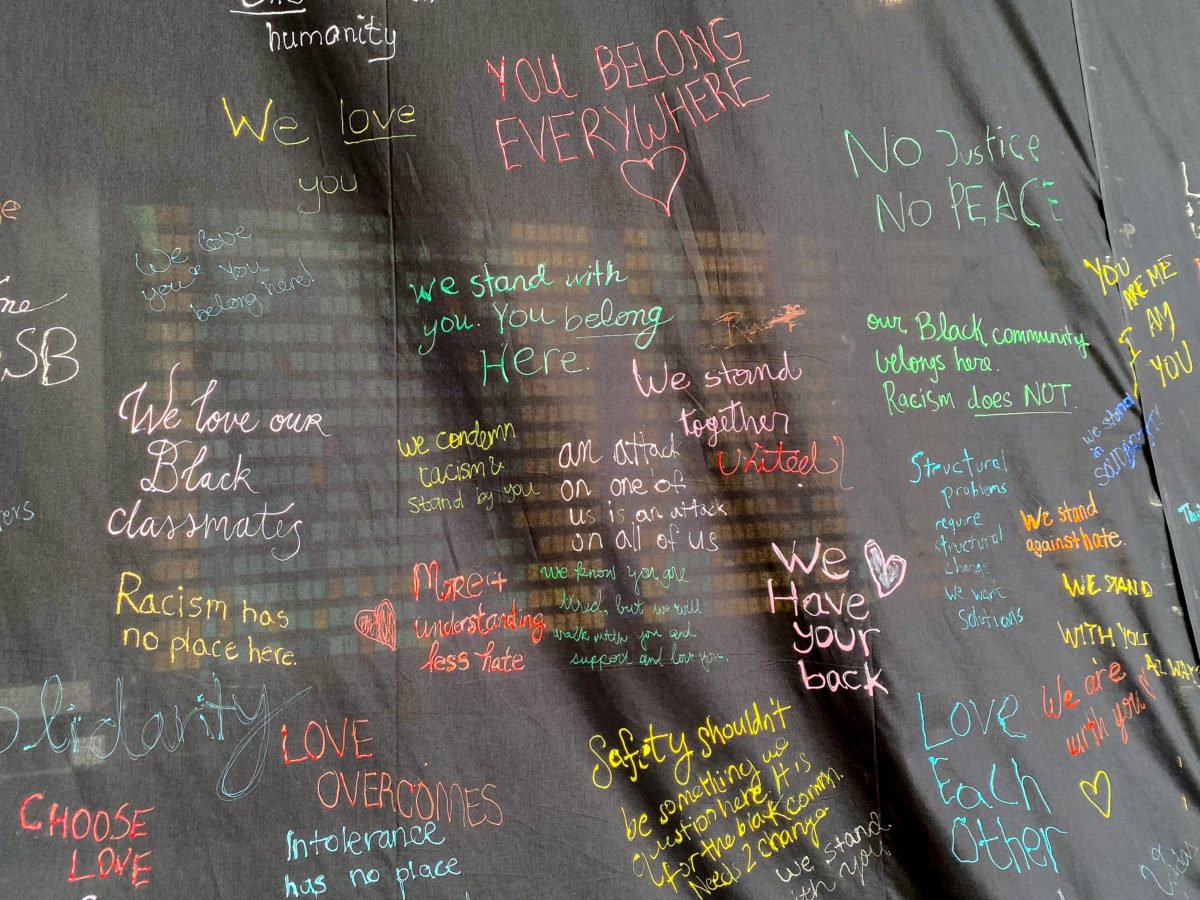 humanity
YOU BELONG
EVERYWHERE
We love
you
No Justice
No PEACE
We love
you & you
belong here!
SB
we stand with
you. You belong
Here.
YOU
ARE ME
I AM
YOU
our Black community
belongs here.
Racism does NOT.
We stand
together
United!
We love our
Black
classmates
we condemn
racism &
stand by you
an attack
on one of
us is an attack
on all of us
we stand
in
solidarity!
Structural
problems
require
structural
change
We want
Solutions
We stand
against hate.
We
Have
your
back
Racism has
no place here.
More +
understanding
less hate
we know you are
tired, but we will
walk with you and
support and love you.
WE STAND
WITH YOU
ALWAYS
We are
with you!
olidarity
LOVE
OVERCOMES
Safety shouldn't
be something we
question here. It is
for the black comm.
Needs 2 change
we stand
with you
Love
Each
Other
CHOOSE
LOVE
Intolerance
has no place